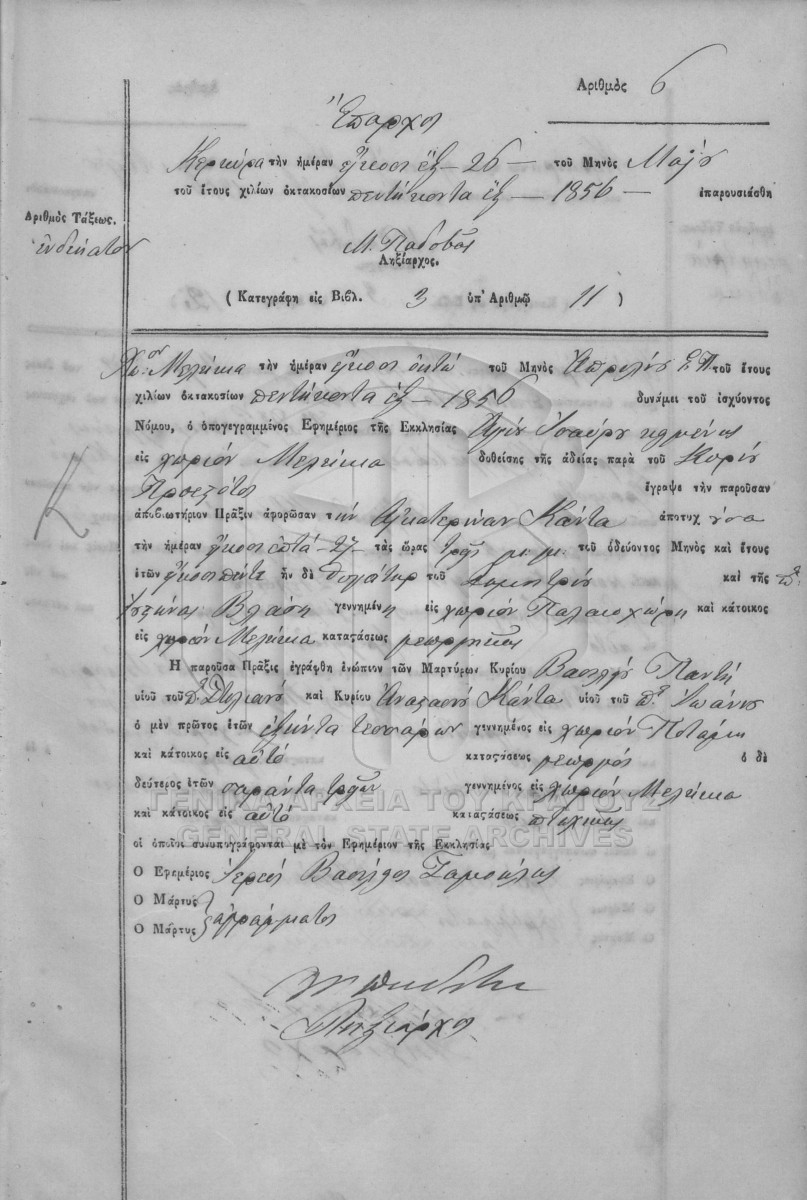 Ἀριθμὸς 6
Ἔπαρχος
Κερκύρα τὴν ἡμέραν εἴκοσι ἕξ - 26 - τοῦ Μηνὸς Μαΐου
τοῦ ἔτους χιλίων ὀκτακοσίων πεντήκοντα ἕξ - 1856 - ἐπαρουσιάσθη
Ἀριθμὸς Τάξεως.
ἑνδέκατον
Ληξίαρχος.
( Κατεγράφη εἰς Βιβλ. 3 ὑπ' Ἀριθμῷ 11 )
Χωρίον Μελίκια τὴν ἡμέραν εἴκοσι ὀκτώ τοῦ Μηνὸς Ἀπριλίου Ε.Π. τοῦ ἔτους
χιλίων ὀκτακοσίων πεντήκοντα ἕξ - 1856 δυνάμει τοῦ ἰσχύοντος
Νόμου, ὁ ὑπογεγραμμένος Ἐφημέριος τῆς Ἐκκλησίας Ἁγίου
εἰς χωρίον Μελίκια δοθείσης τῆς ἀδείας παρὰ τοῦ Κυρίου
Προεστότος ἔγραψε τὴν παροῦσαν
ἀποβιωτήριον Πρᾶξιν ἀφορῶσαν τὴν Αἰκατερίναν Κάντα ἀποτυχοῦσα
τὴν ἡμέραν εἴκοσι ἑπτά - 27 - τὰς ὥρας τρεῖς μ.μ. τοῦ ὁδεύοντος Μηνὸς καὶ ἔτους
ἐτῶν εἴκοσι πέντε ἦν δὲ θυγάτηρ τοῦ Δημητρίου καὶ τῆς
Βλάση γεννημένη εἰς χωρίον Παλαιοχώρι καὶ κάτοικος
εἰς χωρίον Μελίκια καταστάσεως γεωργικῆς
Ἡ παροῦσα Πρᾶξις ἐγράφθη ἐνώπιον τῶν Μαρτύρων Κυρίου Βασιλείου Παντῆ
υἱοῦ τοῦ π. Στυλιανοῦ καὶ Κυρίου Ἀναστασίου Κάντα υἱοῦ τοῦ π. Ἰωάννου
ὁ μὲν πρῶτος ἐτῶν ἑξήντα τεσσάρων γεννημένος εἰς χωρίον Ποτάμι
καὶ κάτοικος εἰς αὐτό καταστάσεως γεωργός ὁ δὲ
δεύτερος ἐτῶν σαράντα τριῶν γεννημένος εἰς χωρίον Μελίκια
καὶ κάτοικος εἰς αὐτό καταστάσεως
οἱ ὁποῖοι συνυπογράφονται μὲ τὸν Ἐφημέριον τῆς Ἐκκλησίας
Ὁ Ἐφημέριος Ἱερεύς Βασίλειος
Ὁ Μάρτυς
Ὁ Μάρτυς ἀγράμματοι
Ληξίαρχος
ΓΕΝΙΚΑ ΑΡΧΕΙΑ ΤΟΥ ΚΡΑΤΟΥΣ
GENERAL STATE ARCHIVES